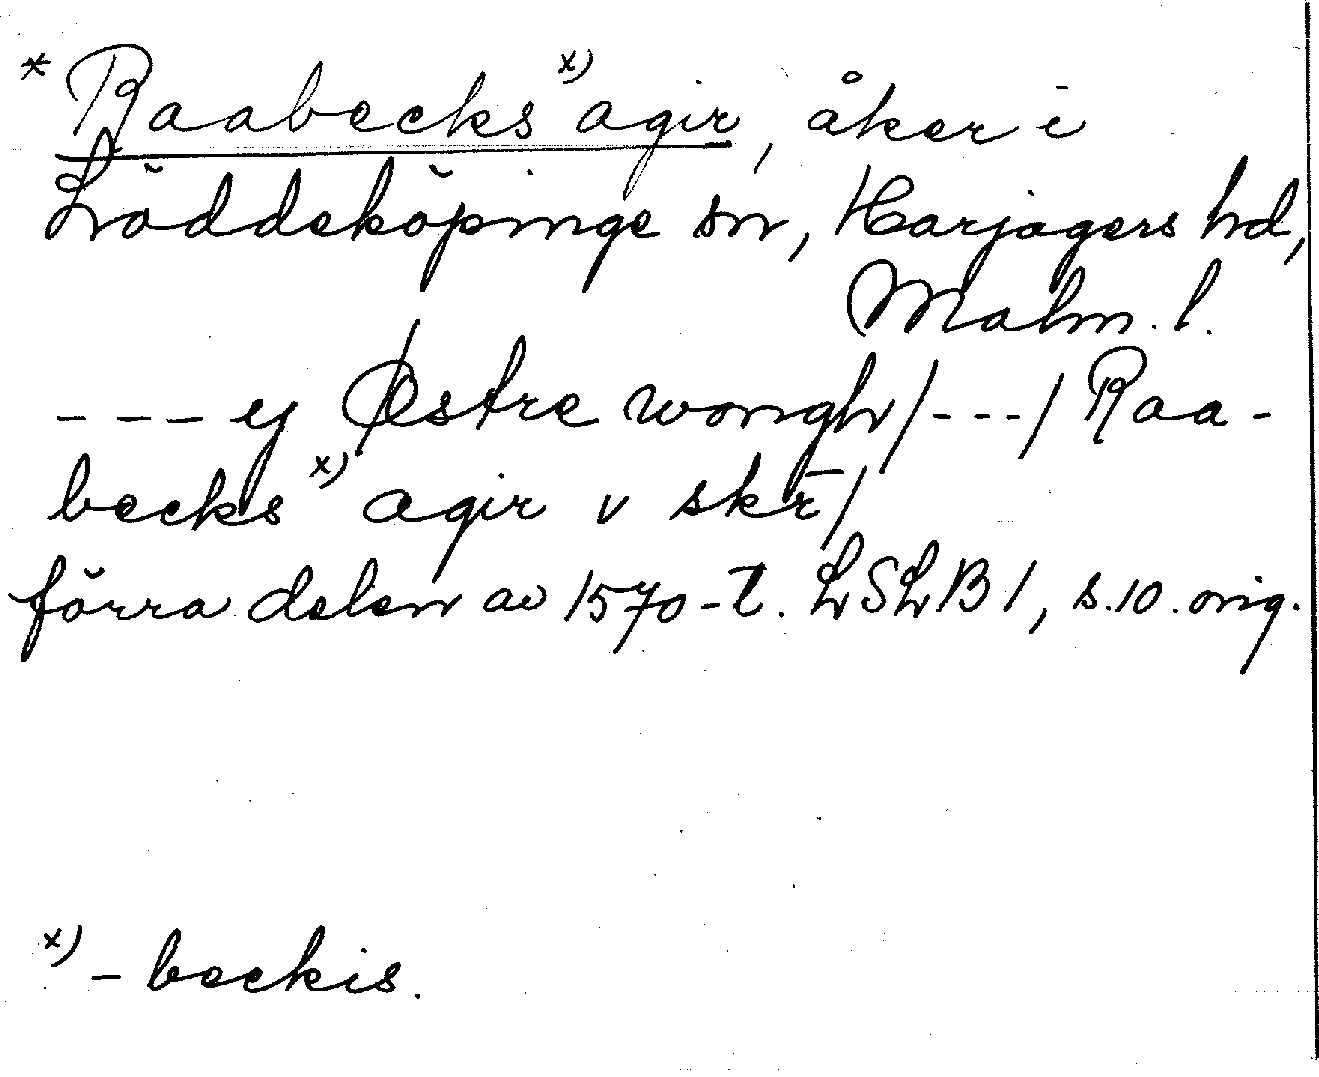 * Raabecks x) agir, åker i
Löddeköpinge sn, Harjagers hd,
Malm. l.
--- ej Østre wongh/---/ Raa-
becks x) agir v skr̄/
förra delen av 1570-t. LSLB 1, s. 10. orig.
x) - beckis.